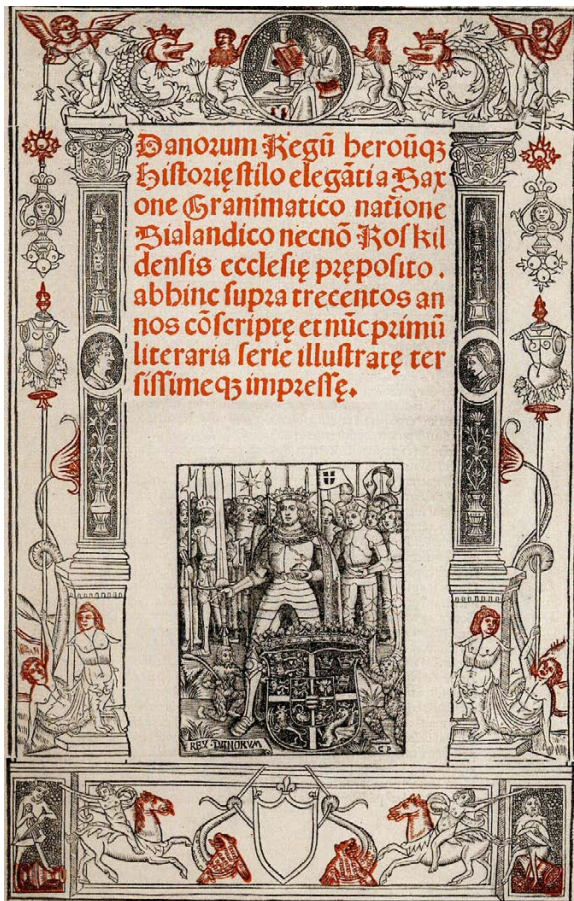 Danorum Regū heroūqꝫ
Historię stilo elegāti a Sax
one Grammatico natione
Sialandico necnō Roskil
densis ecclesię pręposito.
abhinc supra trecentos an
nos cōscriptę et nūc primū
literaria serie illustratę ter
sissimeqꝫ impressę.
REX · DANORVM
C P